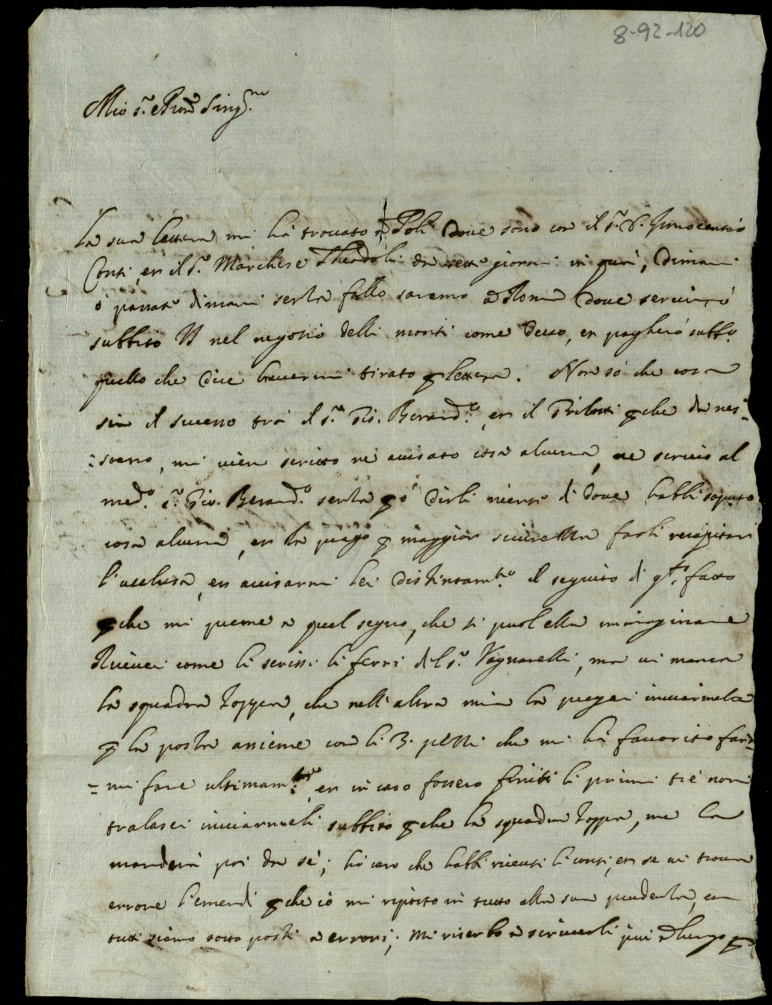 8-92-120
Mio S.r e Pron Sing.mo
La sua lettera mi hà trovato à Poli dove sono con il S.r D. Innocentio
Conti, et il S.r Marchese Theodoli da sette giorni in quà, dimani
ò passato dimani senza fallo saremo a Roma dove servirò
subbito VS nel negotio delli monti come devo, et pagherò subb.o
quello che dice havermi tirato p lettera. Non sò che cosa
sia il successo trà il S.r Gio. Berard.o, et il Prilotti pche da nes=
=suno, mi vien scritto ne avisato cosa alcuna, ne scrivo al
med.o S.r Gio. Berard.o senza pò dirli niente di dove habbi saputo
cosa alcuna, et la prego p maggior sicurezza farli recapitar
l'acclusa, et avisarmi lei distintam.te il seguito di q.to fatto
pche mi preme a quel segno, che si puol ella immaginare
Ricevei come li scrissi li ferri del S.r Vagnarelli, ma vi manca
la squadra zoppa, che nell'altra mia la pregai inviarmela
p la posta assieme con li 3. pezzi che mi hà favorito far=
=mi fare ultimam.te, et in caso fossero finiti li primi tre non
tralasci inviarmeli subbito pche la squadra zoppa, me la
manderà poi da sè; hò caro che habbi ricevuti li conti, et se vi trova
errore l'emendi pche io mi riporto in tutto alla sua prudenza, et
tutti siamo sotto posti a errori; Mi riserbo a scriverli più a lungo p